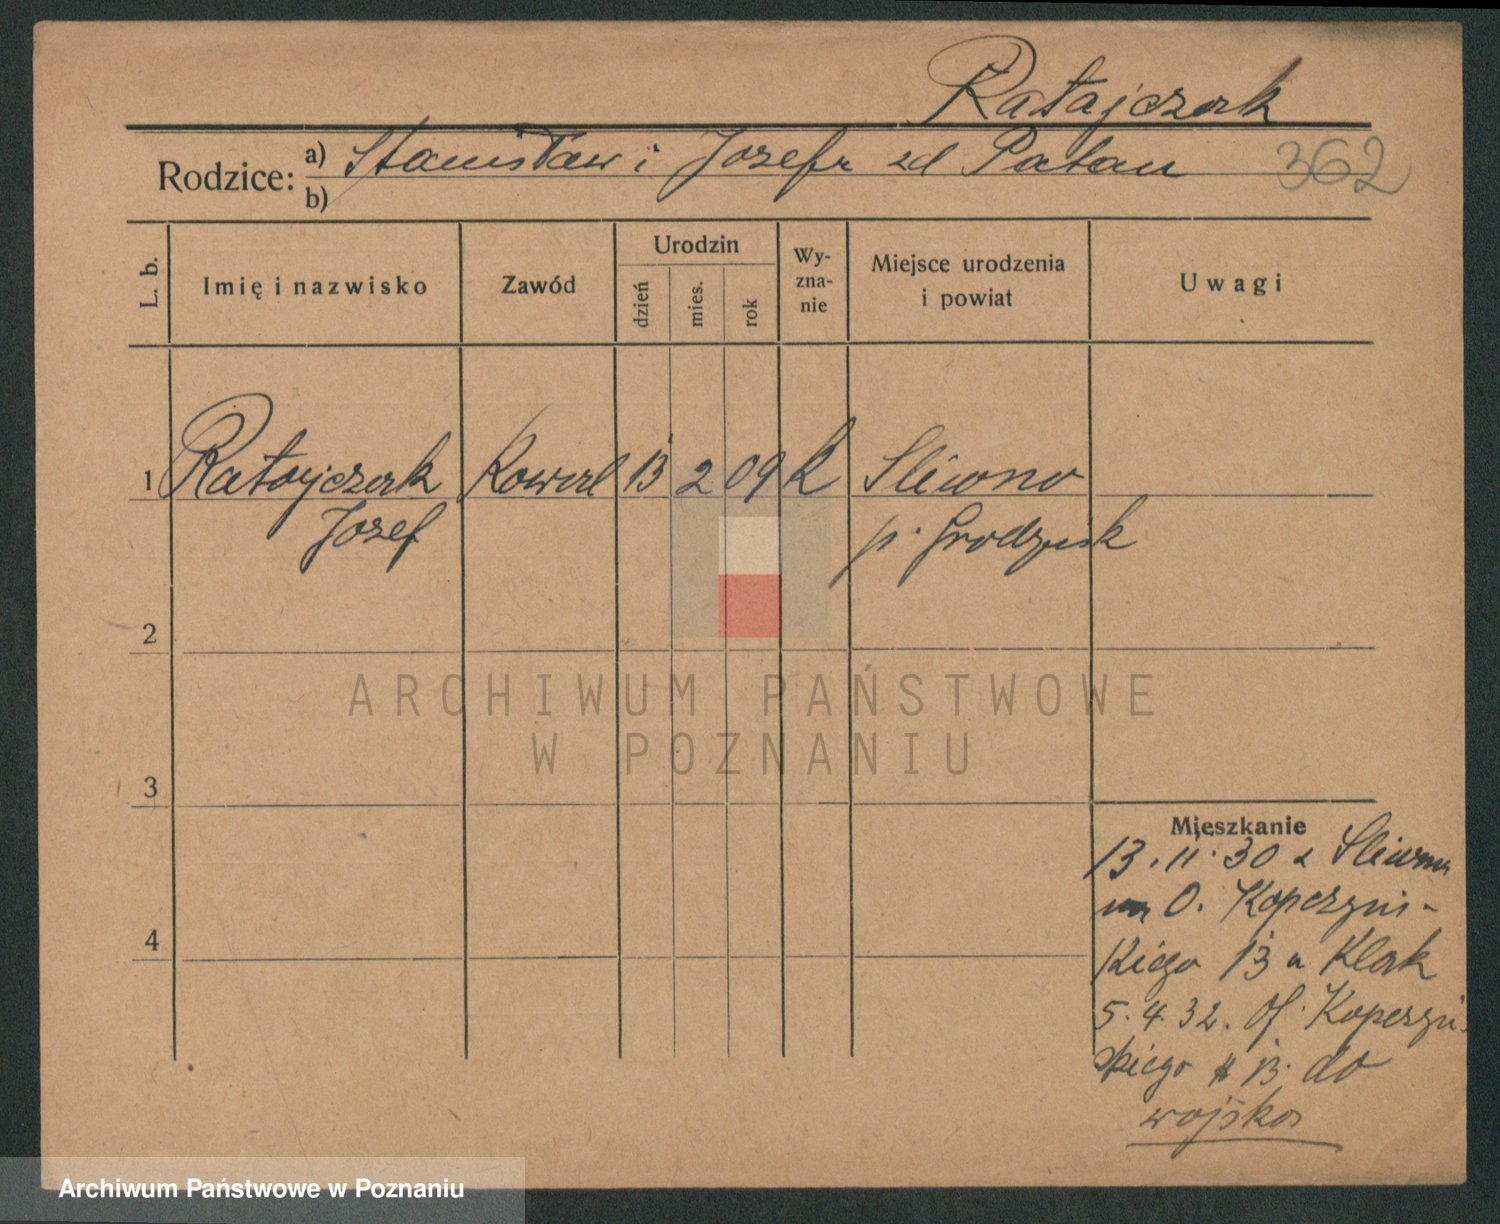 Ratajczak
Rodzice: a) Stanisław i Józefa zd Patan
b)
362
L. b.
Imię i nazwisko
Zawód
Urodzin
dzień
mies.
rok
Wy-
zna-
nie
Miejsce urodzenia
i powiat
Uwagi
1 Ratajczak Kowal 13 2 09 K Sliwno
Józef p. Grodzisk
2
3
4
ARCHIWUM PAŃSTWOWE
W POZNANIU
Mieszkanie
13.11.30 z Sliwna
O. Kopczyńs-
kiego 13 u Klak
5.4.32. Of. Kopczyń
skiego 13. do
wojska
Archiwum Państwowe w Poznaniu